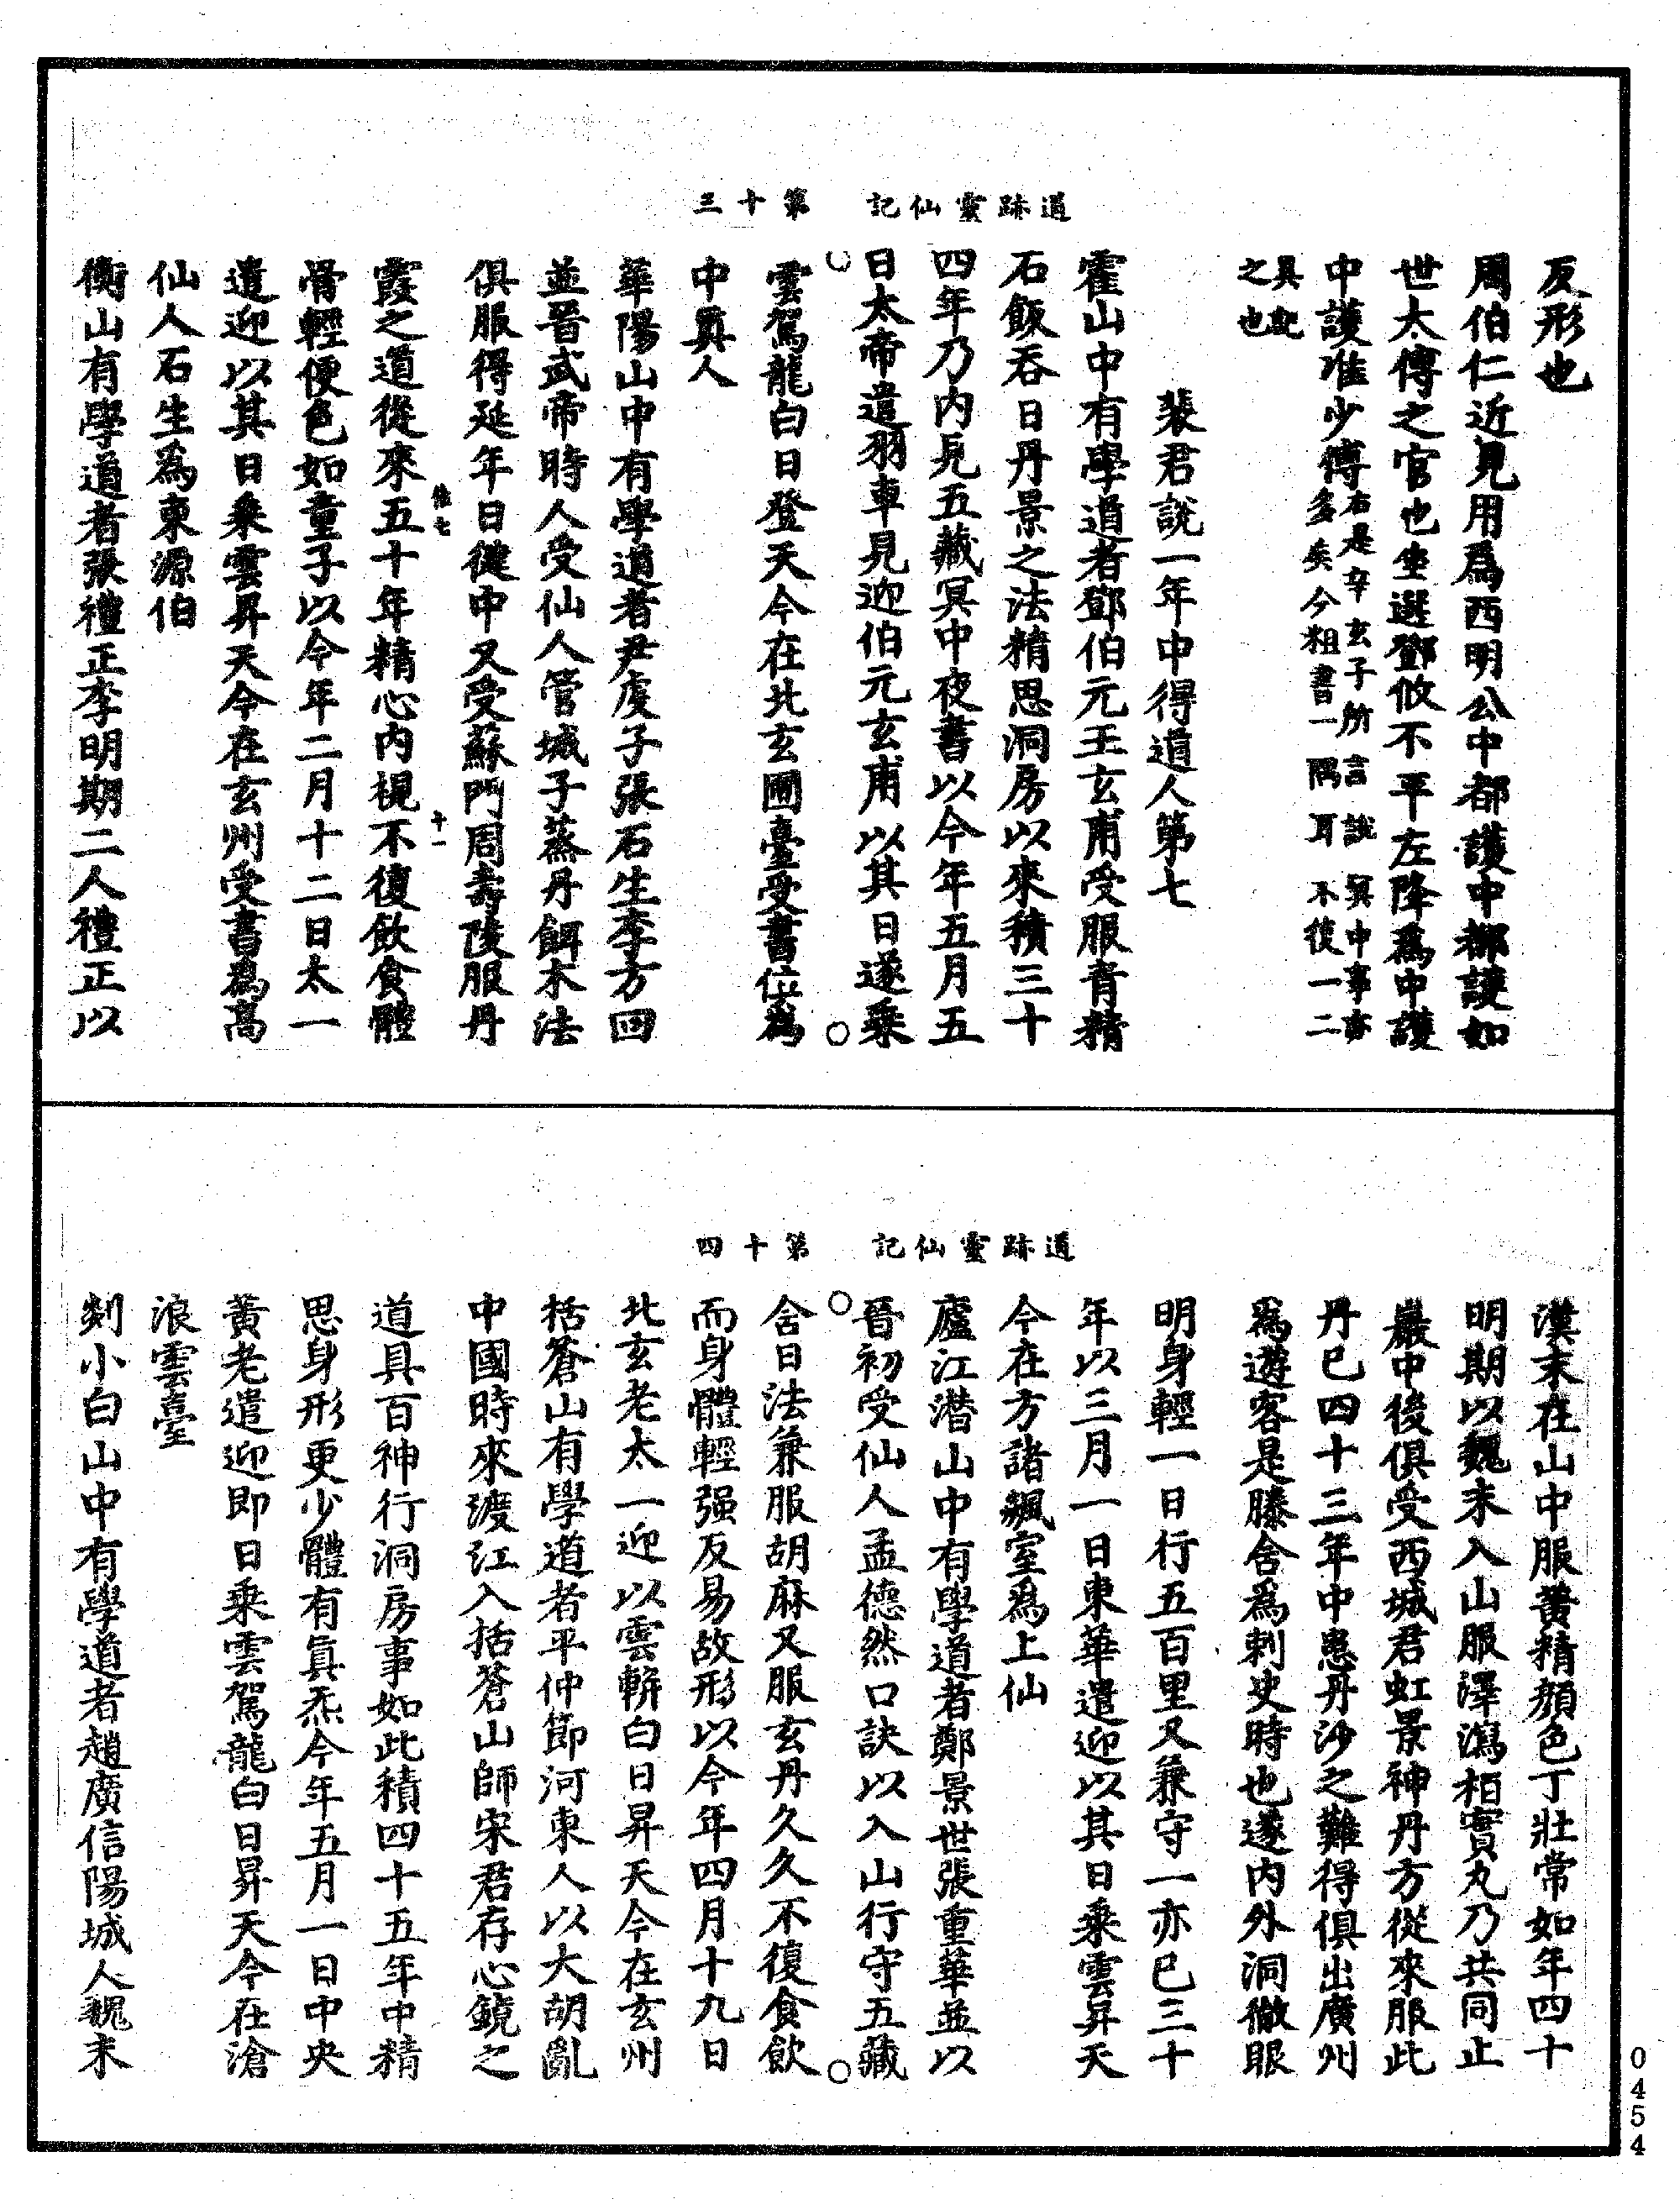 道跡靈仙記　第十三
反形也
周伯仁近見用爲西明公中都護中都護如
世太傅之官也坐選鄧攸不平左降爲中護
中護准少傅右是辛玄子所言說冥中事亦
多矣今粗書一隅耳不復一二
具記
之也
裴君說一年中得道人第七
霍山中有學道者鄧伯元王玄甫受服青精
石飯吞日丹景之法精思洞房以來積三十
四年乃內見五藏冥中夜書以今年五月五
日太帝遣羽車見迎伯元玄甫以其日遂乘
雲駕龍白日登天今在北玄圃臺受書位爲
中眞人
華陽山中有學道者尹虔子張石生李方回
並晉武帝時人受仙人管城子蒸丹餌朮法
俱服得延年日健中又受蘇門周壽陵服丹
霞之道從來五十年精心內視不復飲食體
骨輕便色如童子以今年二月十二日太一
遣迎以其日乘雲昇天今在玄州受書爲高
仙人石生爲東源伯
衡山有學道者張禮正李明期二人禮正以
道跡靈仙記　第十四
漢末在山中服黃精顏色丁壯常如年四十
明期以魏末入山服澤瀉栢實丸乃共同止
巖中後俱受西城君虹景神丹方從來服此
丹已四十三年中患丹沙之難得俱出廣州
爲遊客是滕舍爲刺史時也遂內外洞徹眼
明身輕一日行五百里又兼守一亦已三十
年以三月一日東華遣迎以其日乘雲昇天
今在方諸飆室爲上仙
廬江潛山中有學道者鄭景世張重華並以
晉初受仙人孟德然口訣以入山行守五藏
含日法兼服胡麻又服玄丹久久不復食飲
而身體輕强反易故形以今年四月十九日
北玄老太一迎以雲軿白日昇天今在玄州
括蒼山有學道者平仲節河東人以大胡亂
中國時來渡江入括蒼山師宋君存心鏡之
道具百神行洞房事如此積四十五年中精
思身形更少體有眞炁今年五月一日中央
黃老遣迎即日乘雲駕龍白日昇天今在滄
浪雲臺
剡小白山中有學道者趙廣信陽城人魏末
0454